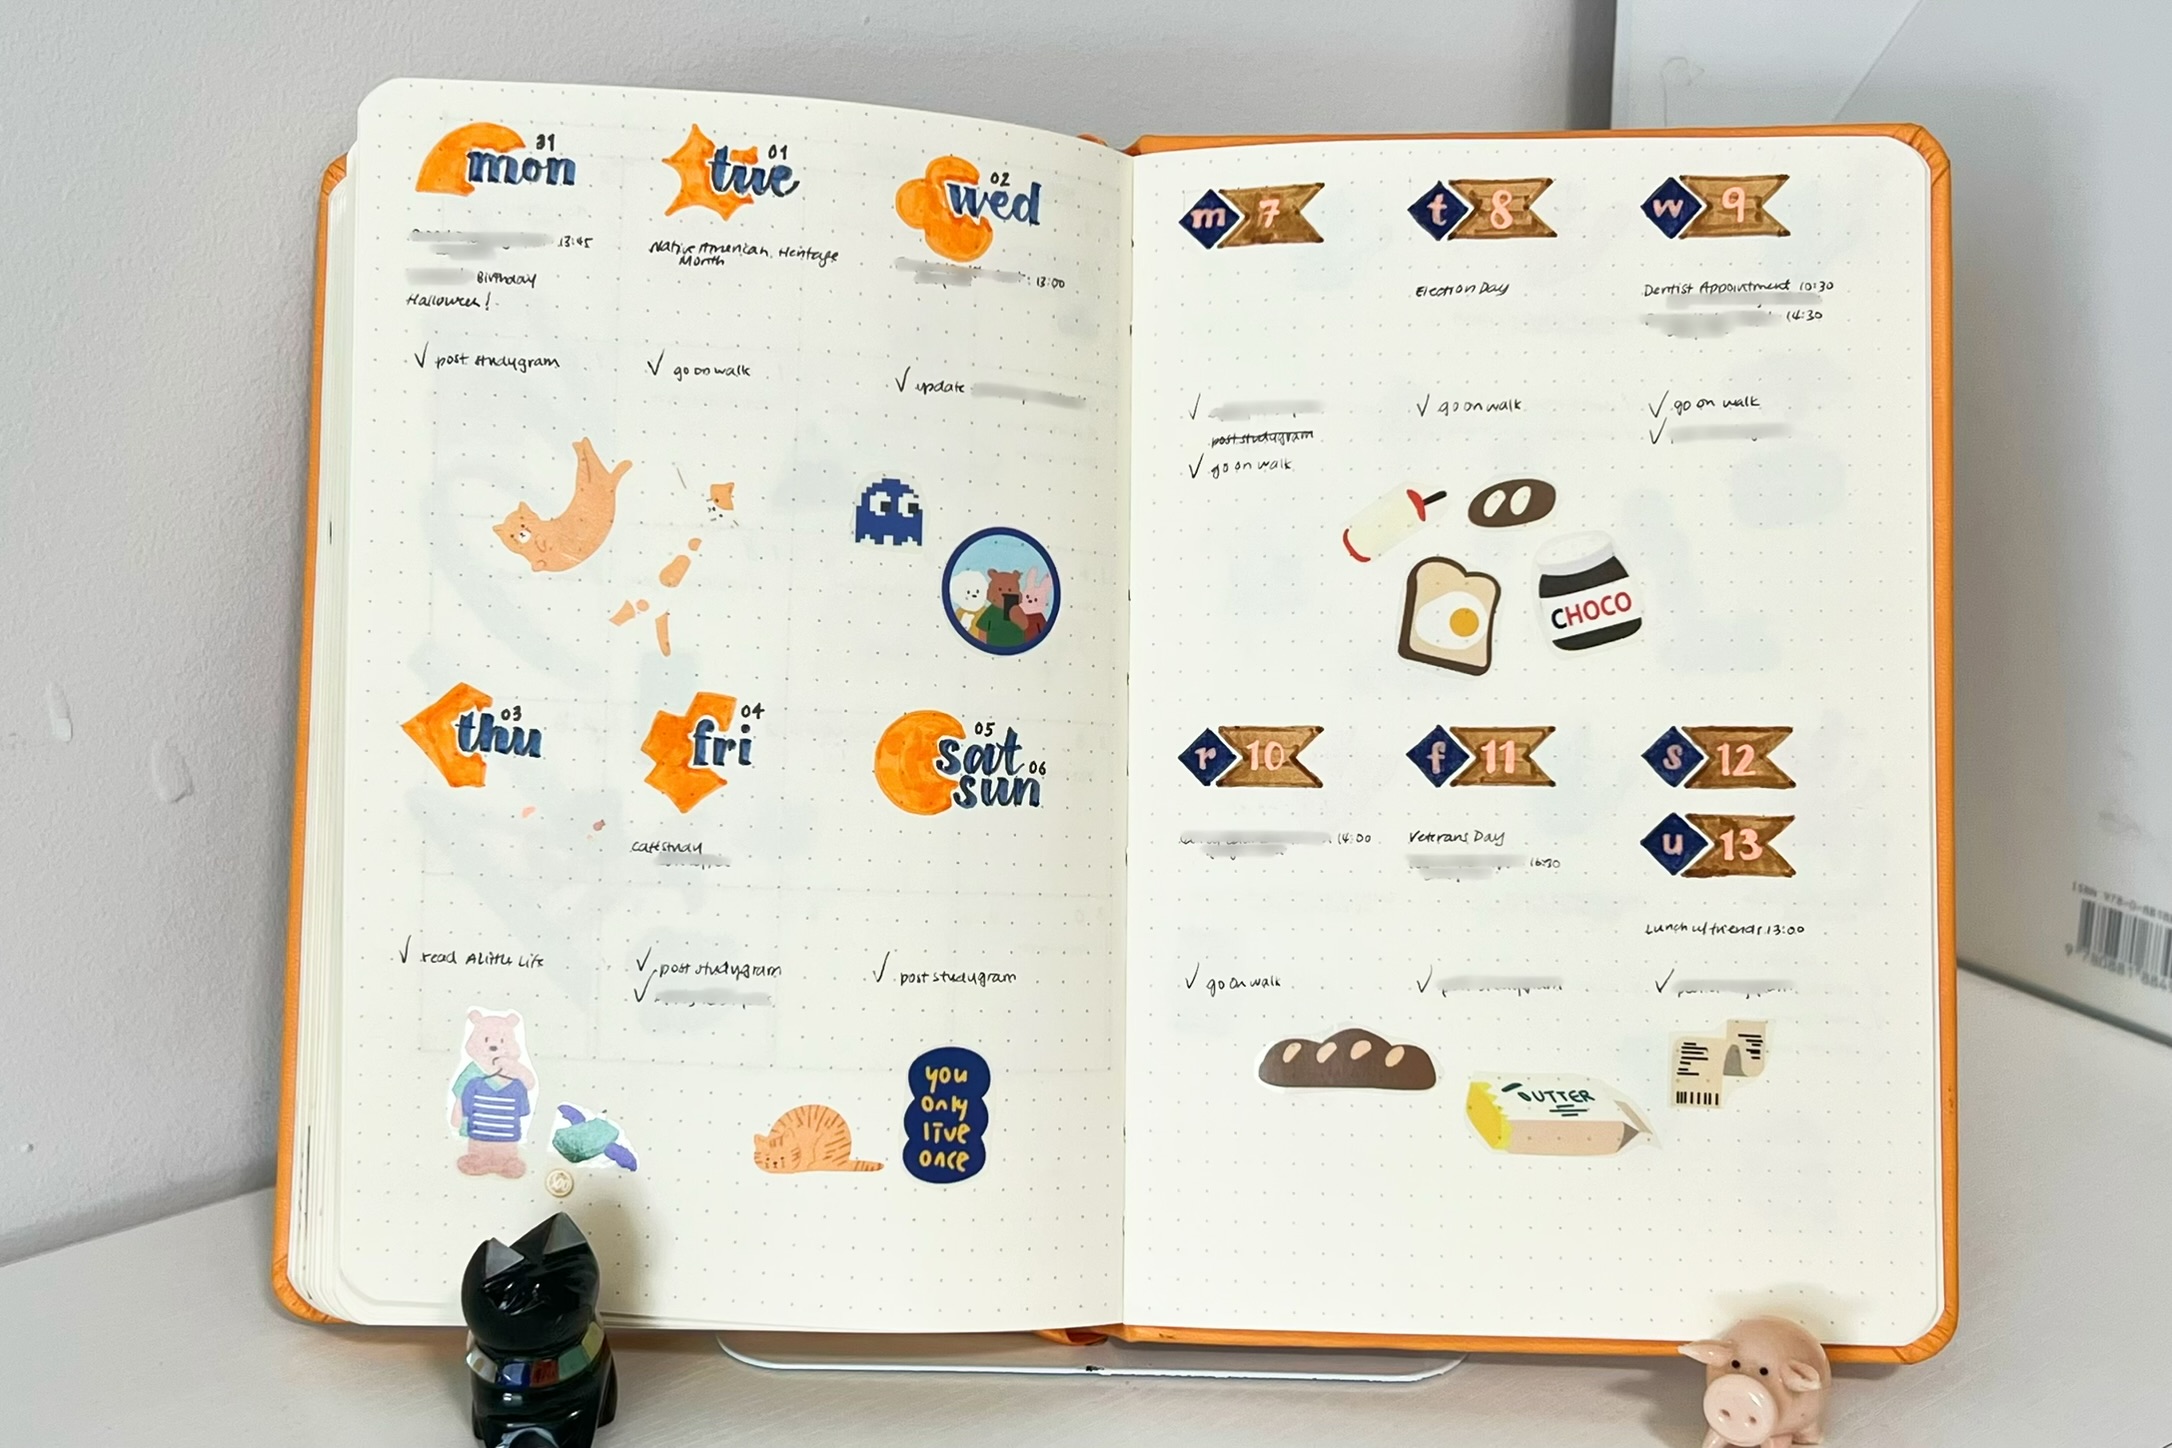 31
mon
13:45
Birthday
Halloween!
✓ post studygram
01
tue
Native American Heritage
Month
✓ go on walk
02
wed
13:00
✓ update
03
thu
✓ read A Little Life
04
fri
cafe study
✓ post studygram
✓
05
sat
06
sun
✓ post studygram
you
only
live
once
m 7
✓
post studygram
✓ go on walk
t 8
Election Day
✓ go on walk
w 9
Dentist Appointment 10:30
14:30
✓ go on walk
✓
CHOCO
r 10
14:00
✓ go on walk
f 11
Veterans Day
16:30
✓
s 12
u 13
Lunch w/ friends 13:00
✓
BUTTER